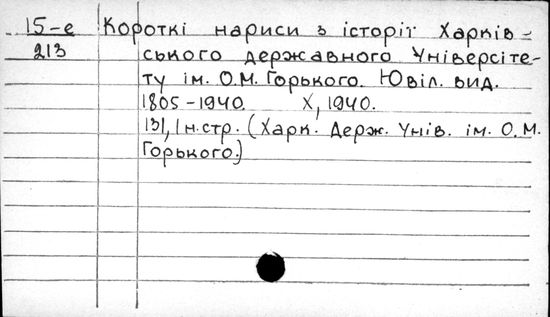 15-е Короткі нариси з історії Харків-
213 ського державного Університе-
ту ім. О.М. Горького. Ювіл. вид.
1805-1940. Х, 1940.
131, 1 н.стр. (Харк. Держ. Унів. ім. О.М.
Горького.)